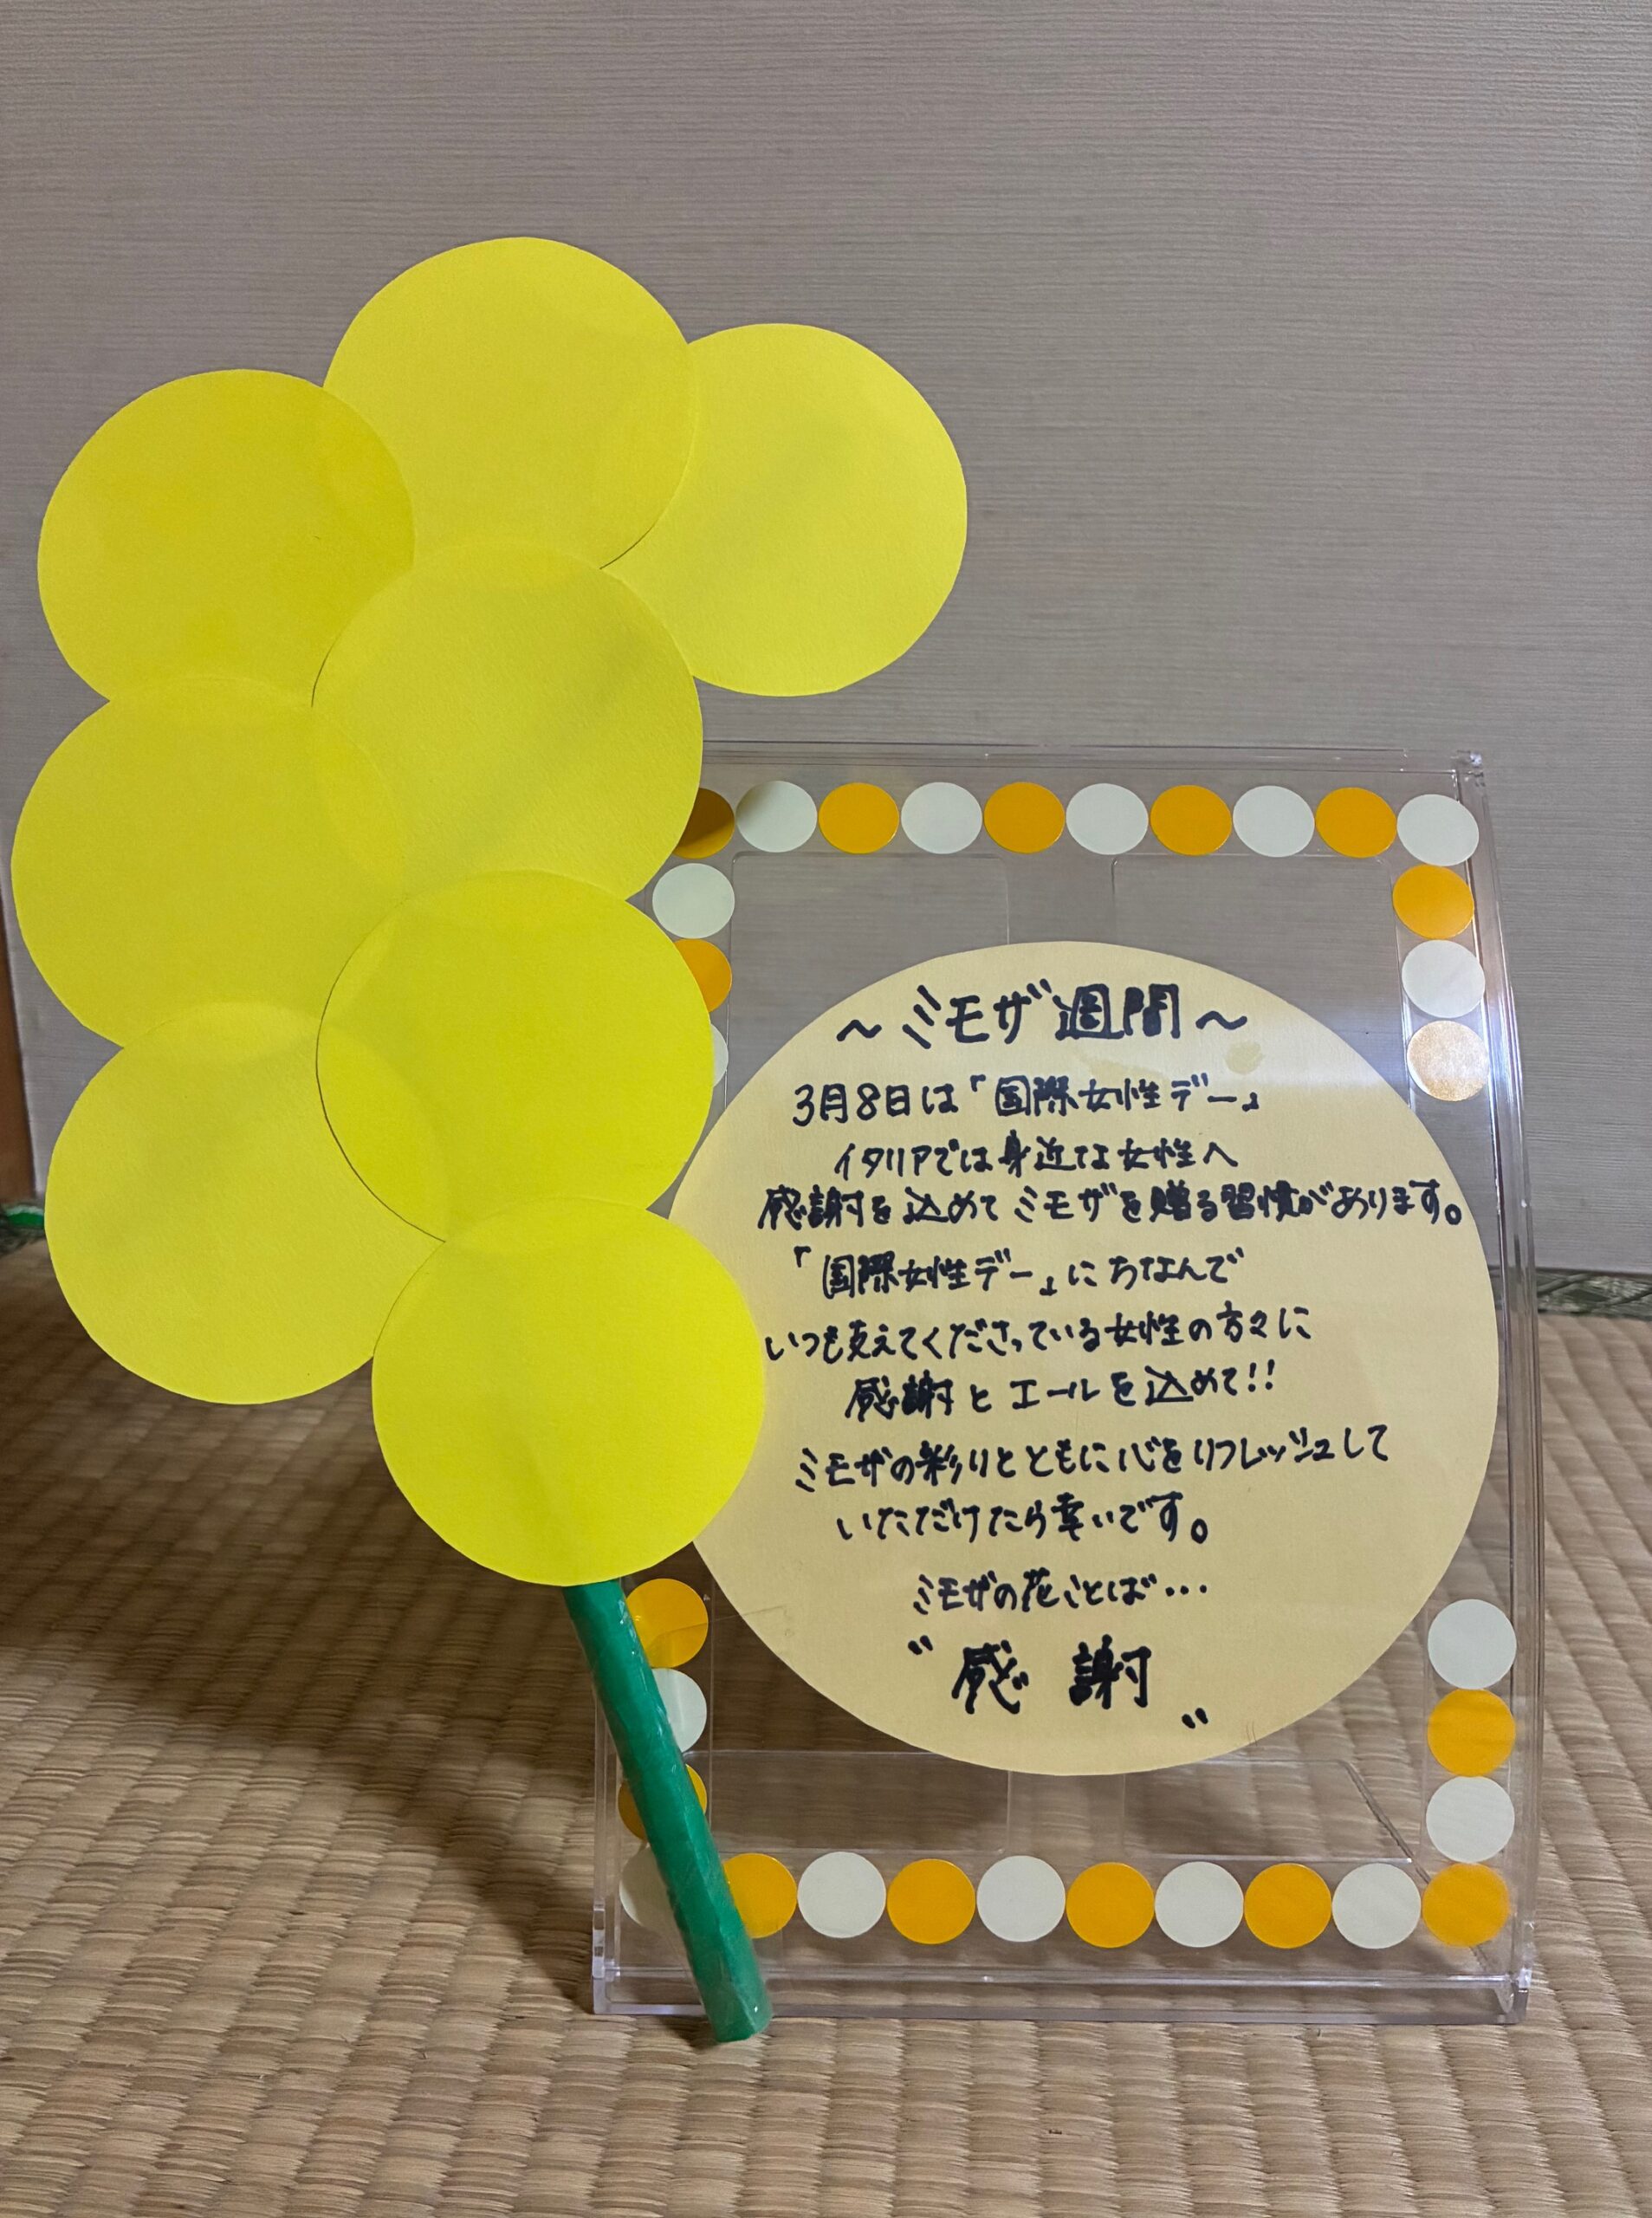 ～ミモザ週間～
3月8日は「国際女性デー」
イタリアでは身近な女性へ
感謝を込めてミモザを贈る習慣があります。
「国際女性デー」にちなんで
いつも支えてくださっている女性の方々に
感謝とエールを込めて!!
ミモザの彩りとともに心をリフレッシュして
いただけたら幸いです。
ミモザの花ことば…
〝感謝〟